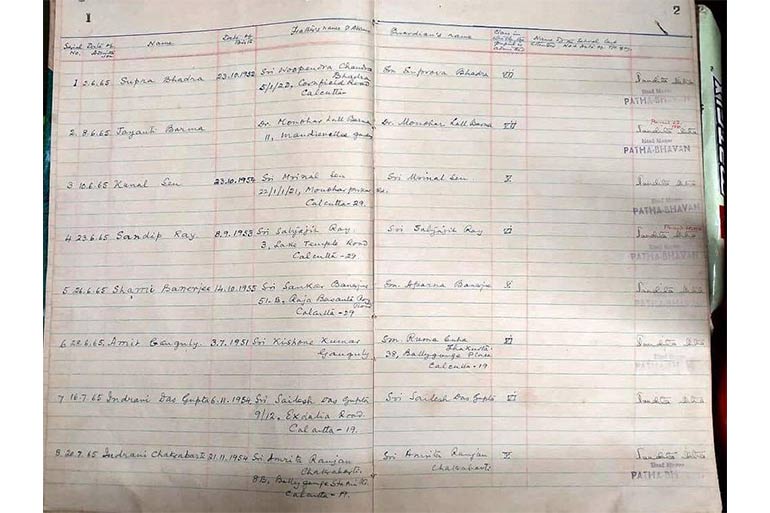 1
2
Serial No. Date of Admission Name Date of Birth Father's name & Address Guardian's name Class in
1 2.6.65 Supra Bhadra 23.10.1952 Sri Noopendra Chandra Bhadra Sm. Suprova Bhadra VII
5/1/2D, Cornfield Road
Calcutta
Head Master
PATHA-BHAVAN
2. 8.6.65 Jayanti Barma Dr. Monohar Lall Barma Dr. Monohar Lall Barma VII
11, Mandeville Garden
Head Master
PATHA-BHAVAN
3 10.6.65 Kunal Sen 23.10.1954 Sri Mrinal Sen. Sri Mrinal Sen. V
22/1/1/21, Monoharpukur Rd.
Calcutta-29.
Head Master
PATHA-BHAVAN
4 23.6.65 Sandip Ray. 8.9.1953 Sri Satyajit Ray. Sri Satyajit Ray VI
3, Lake Temple Road
Calcutta-29
Head Master
PATHA-BHAVAN
5 26.6.65 Sharmi Banerjee 14.10.1955 Sri Sankar Banerjee Sm. Aparna Banerjee V
51-B, Raja Basanta Roy Road
Calcutta-29
Head Master
PATHA-BHAVAN
6 28.6.65 Amit Ganguly. 3.7.1951 Sri Kishore Kumar Sm. Ruma Guha
Ganguly Thakurta.
38, Ballygunge Place
Calcutta-19
7 16.7.65 Indrani Das Gupta 6.11.1954 Sri Sailesh Das Gupta Sri Sailesh Das Gupta VI
9/12, Ekdalia Road
Calcutta-19.
8. 20.7.65 Indrani Chakrabarti 21.11.1954 Sri Amrita Ranjan Sri Amrita Ranjan V
Chakrabarti. Chakrabarti
8B, Ballygunge Station Rd.
Calcutta-19.
Head Master
PATHA-BHAVAN